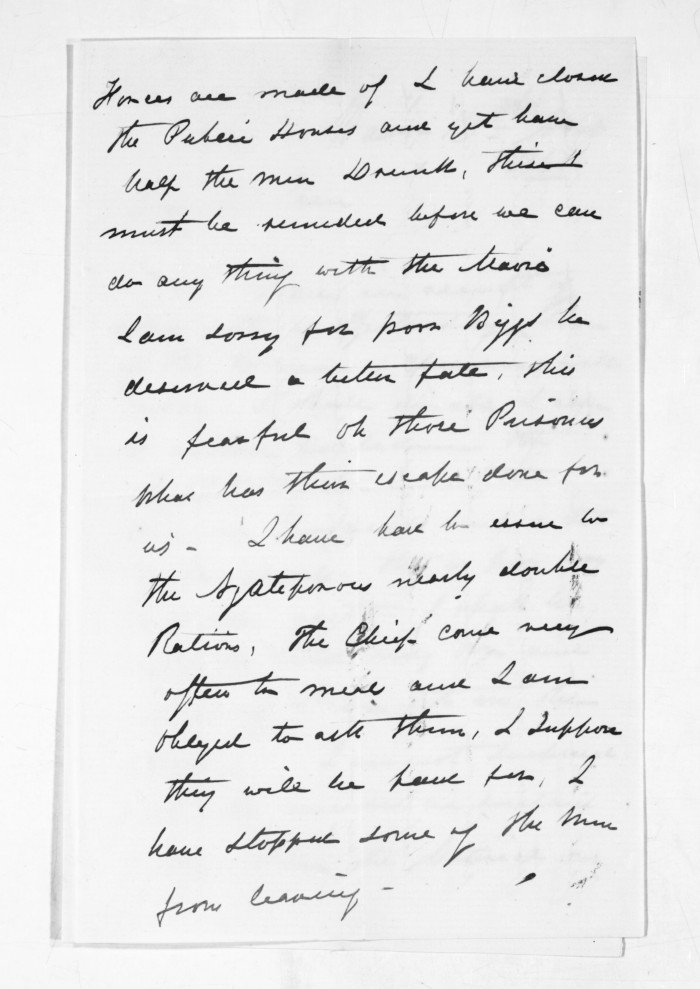 Forces are made of I have closed
the Public Houses and yet have
half the men Drunk, this
must be remided before we can
do any thing with the Maoris
I am sorry for poor Biggs he
deserved a better fate, this
is fearful oh those Prisoners
what has their escape done for
us - I have had to issue to
the Ngateporous nearly double
Rations, The Chiefs come very
often to meals and I am
obliged to ask them, I suppose
they will be paid for, I
have stopped some of the men
from leaving -